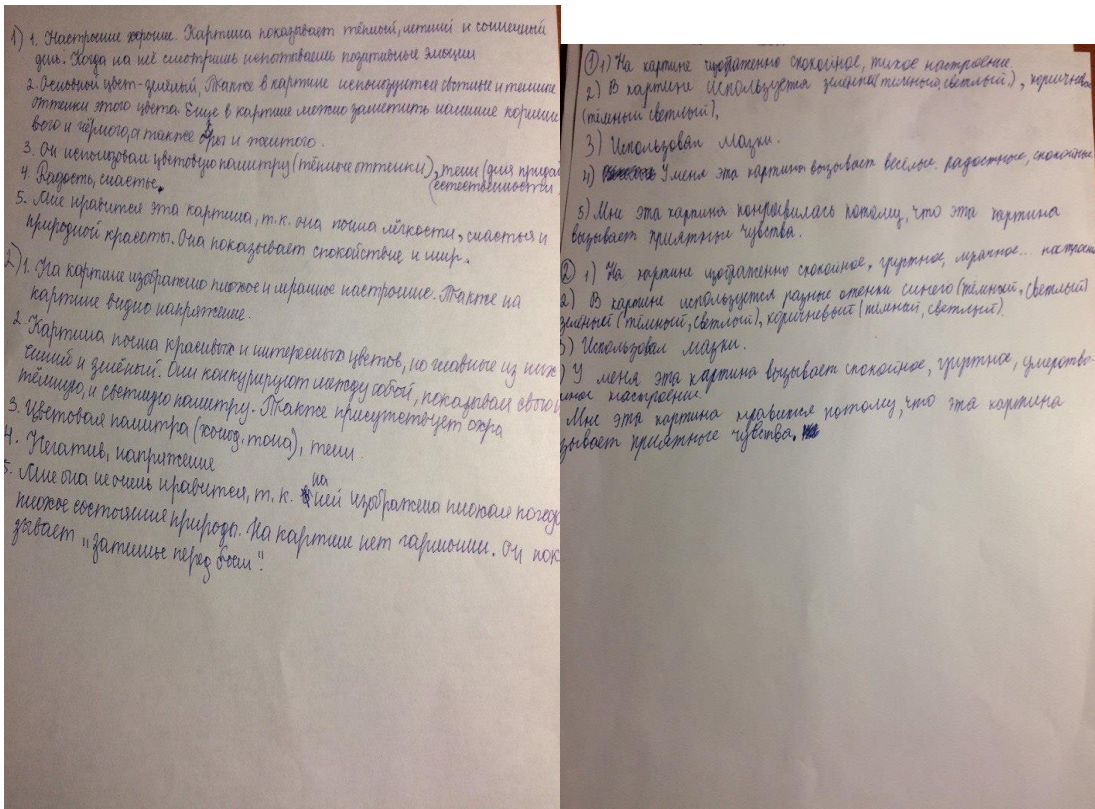 1) 1. Настроение хорошее. Картина показывает тёплый, летний и солнечный
день. Когда на неё смотришь испытываешь позитивные эмоции
2. Основной цвет - зелёный, Также в картине используются светлые и темные
оттенки этого цвета. Еще в картине можно заметить наличие коричне
вого и чёрного, а также и желтого.
3. Он использовал цветовую палитру (тёплые оттенки), тени (для придан
естественности
4. Радость, счастье.
5. Мне нравится эта картина, т.к. она полна лёгкости, счастья и
природной красоты. Она показывает спокойствие и мир.
2) 1. На картине изображено плохое и мрачное настроение. Также на
картине видно напряжение.
2. Картина полна красивых и интересных цветов, но главные из них
синий и зелёный. Они конкурируют между собой, показывая свою
тёмную, и светлую палитру. Также присутствует охра
3. Цветовая палитра (холод. тона), тени.
4. Негатив, напряжение
5. Мне она не очень нравится, т.к. на ней изображена плохая погода
плохое состояние природы. На картине нет гармонии. Он пок
зывает "затишье перед боем".
1) 1) На картине изображенно спокойное, тихое настроение.
2) В картине используется зеленый (темный, светлый), коричневый
(тёмный светлый),
3) Использовал мазки.
4) У меня эта картина вызывает весёлые. радостные, спокойные
5) Мне эта картина понравилась потому, что эта картина
вызывает приятные чувства.
2) 1) На картине изображенно спокойное, грустное, мрачное... настроен
2) В картине используется разные отенки синего (тёмный, светлый)
зеленый (тёмный, светлый), коричневый (тёмный, светлый).
3) Использовал мазки.
) У меня эта картина вызывает спокойное, грустное, умеротво-
ное настроении.
Мне эта картина нравится потому, что эта картина
зывает приятные чувства.